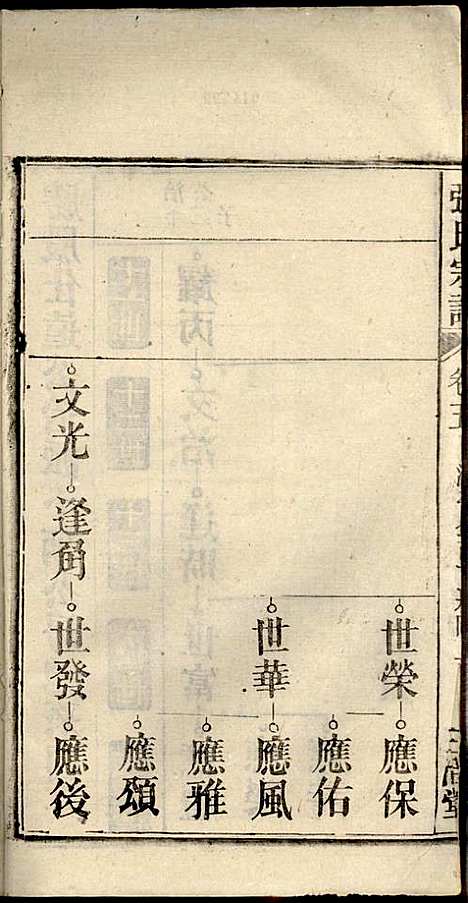 張氏宗譜
卷五
世榮 應保
應佑
世華 應風
應雅
應頌
文光 逢角 世發 應後